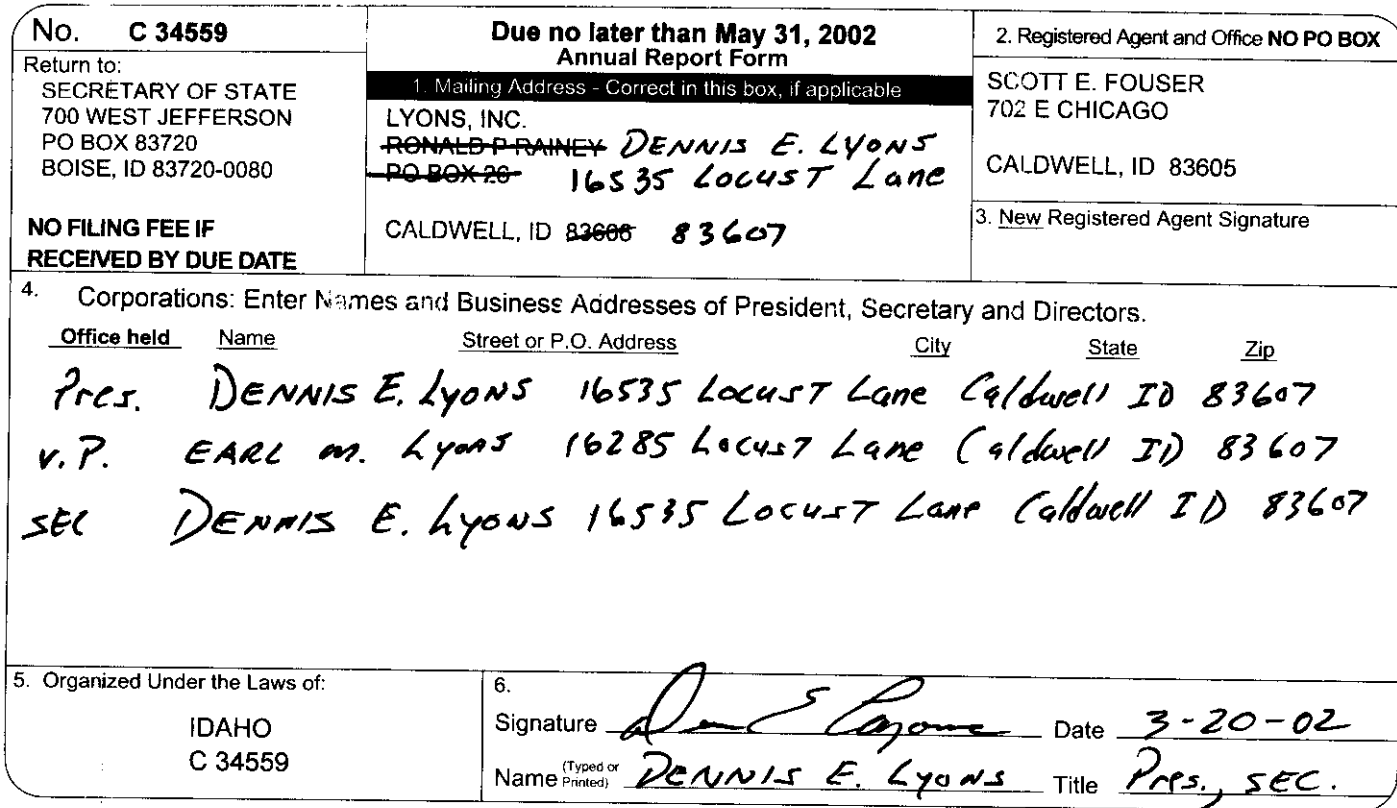 No. C 34559
Return to:
SECRETARY OF STATE
700 WEST JEFFERSON
PO BOX 83720
BOISE, ID 83720-0080
NO FILING FEE IF
RECEIVED BY DUE DATE
Due no later than May 31, 2002
Annual Report Form
1. Mailing Address - Correct in this box, if applicable
LYONS, INC.
RONALD P RAINEY DENNIS E. LYONS
PO BOX 26 16535 Locust Lane
CALDWELL, ID 83606 83607
2. Registered Agent and Office NO PO BOX
SCOTT E. FOUSER
702 E CHICAGO
CALDWELL, ID 83605
3. New Registered Agent Signature
4. Corporations: Enter Names and Business Addresses of President, Secretary and Directors.
Office held Name Street or P.O. Address City State Zip
Pres. DENNIS E. Lyons 16535 Locust Lane Caldwell ID 83607
V.P. EARL M. Lyons 16285 Locust Lane Caldwell ID 83607
SEC DENNIS E. Lyons 16535 Locust Lane Caldwell ID 83607
5. Organized Under the Laws of:
IDAHO
C 34559
6.
Signature Date 3-20-02
Name (Typed or Printed) DENNIS E. Lyons Title Pres., SEC.